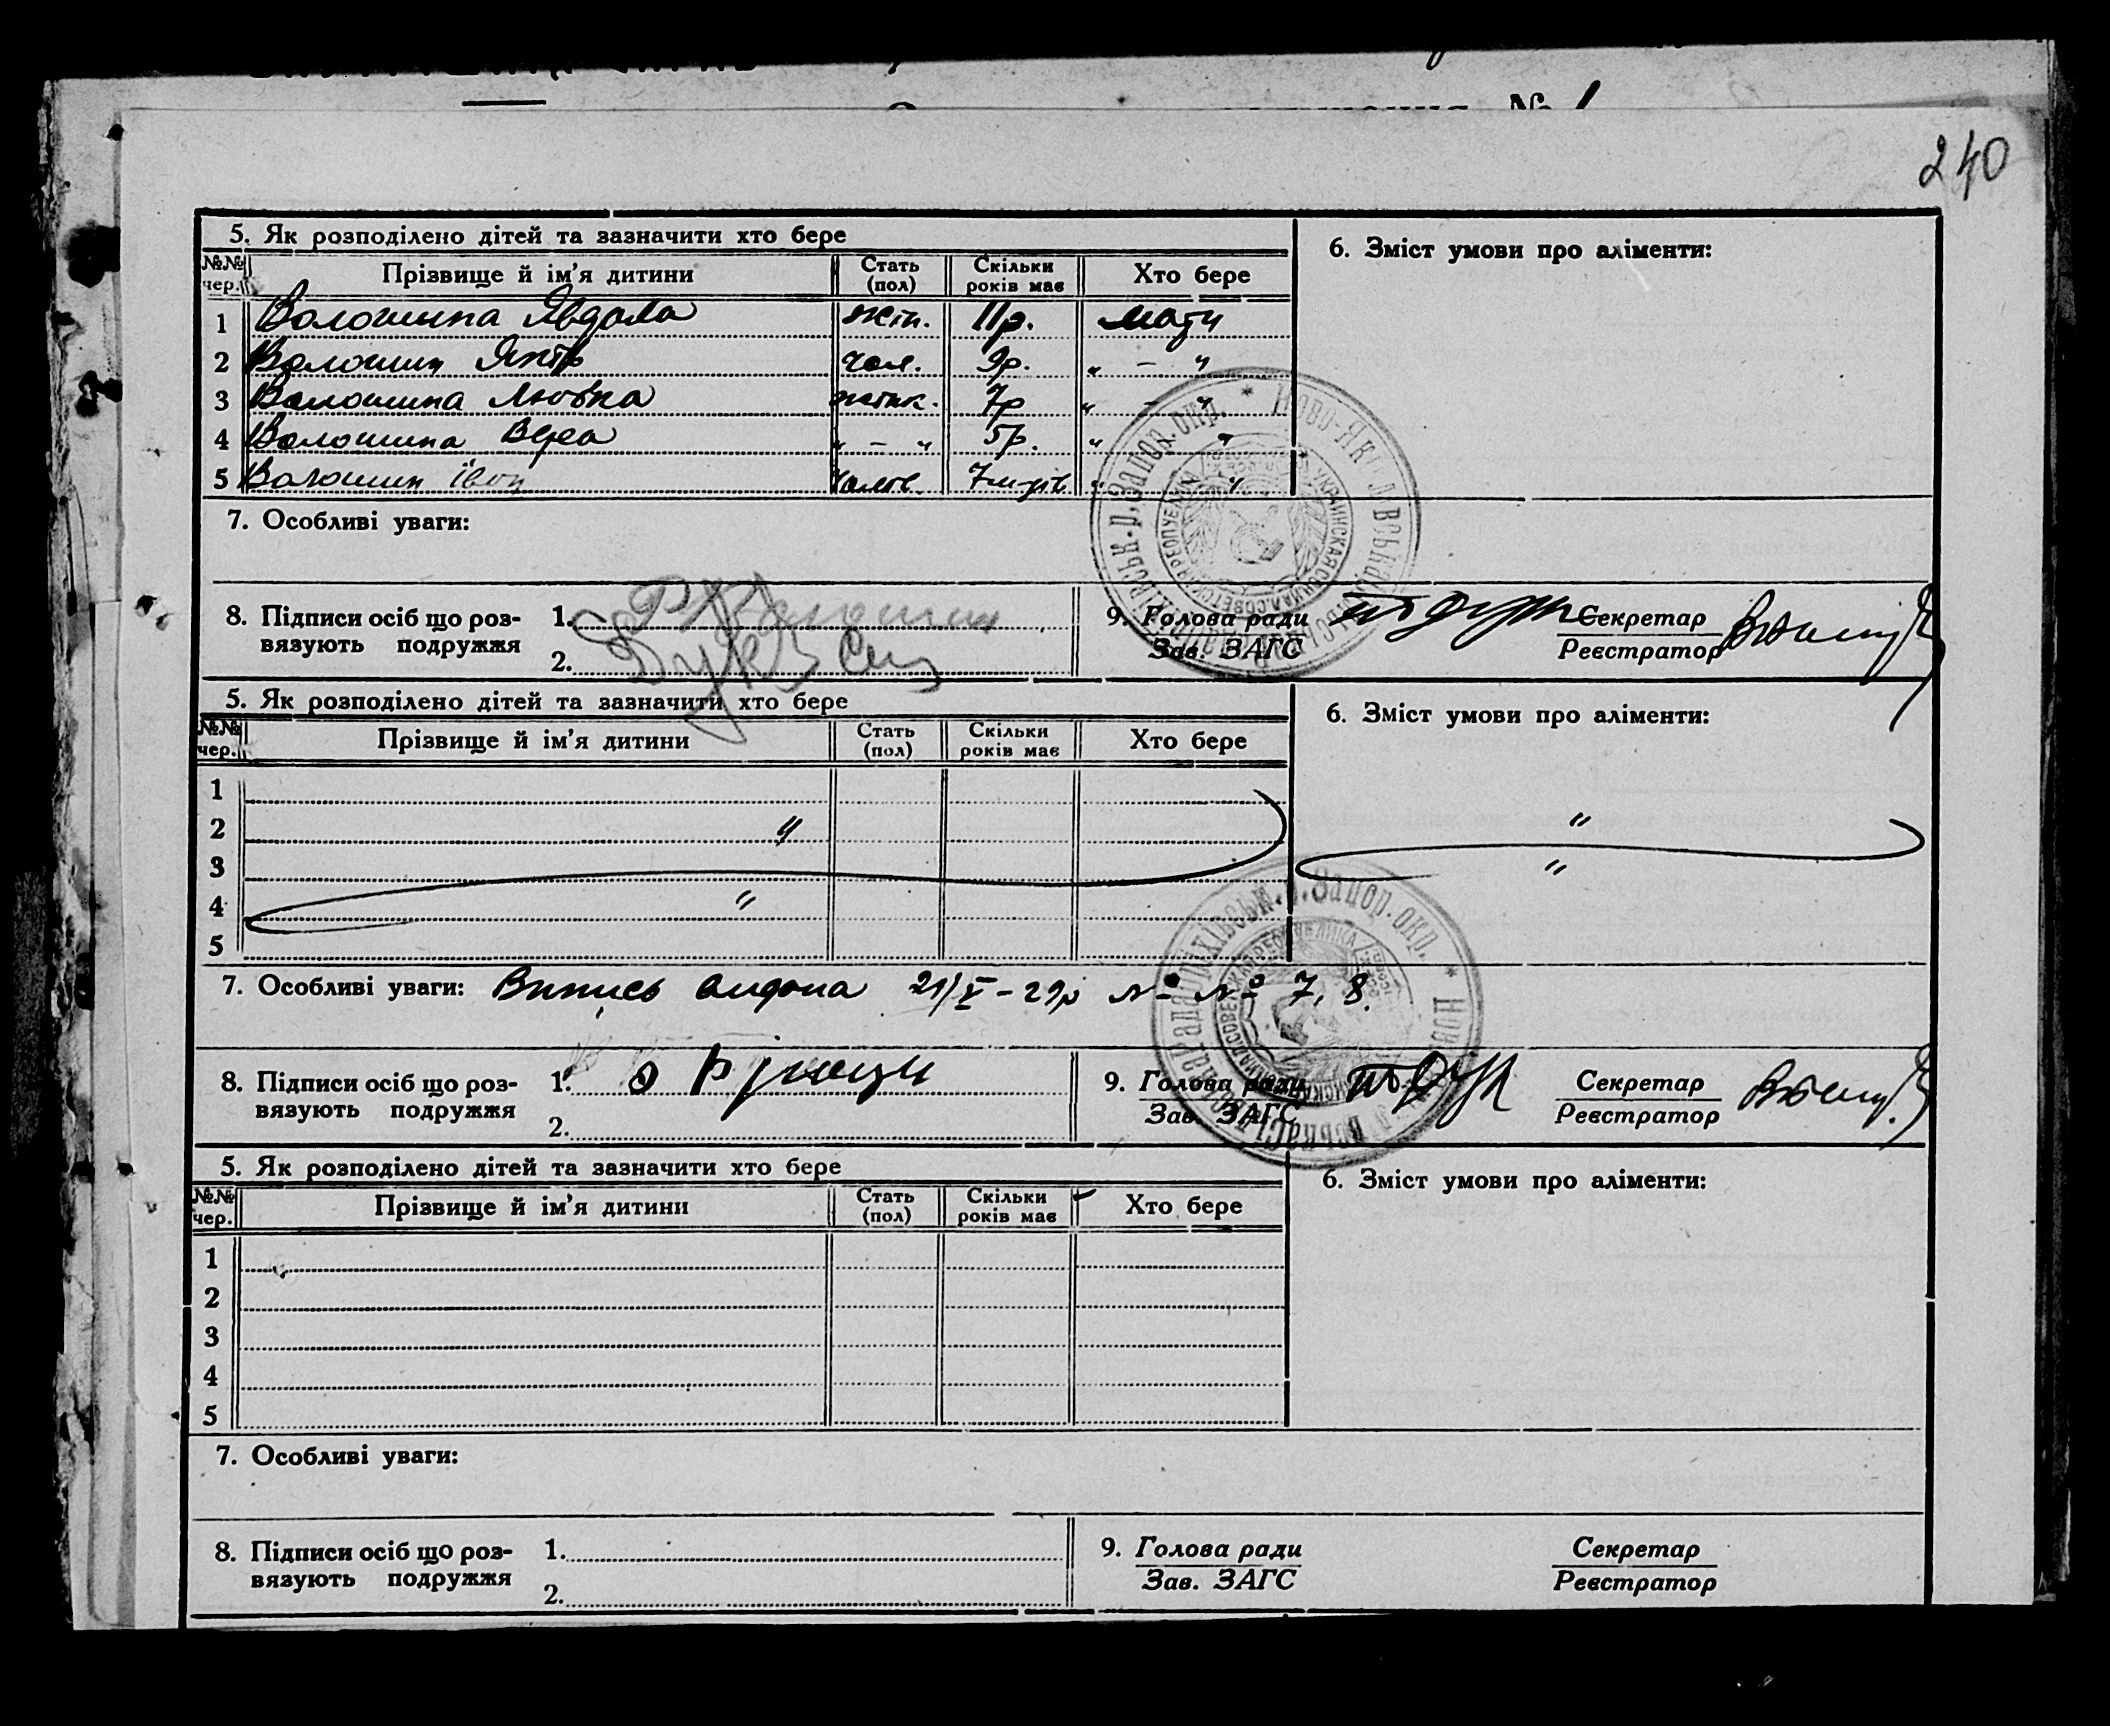 240
5. Як розподілено дітей та зазначити хто бере
6. Зміст умови про аліменти:
№№ чер. Прізвище й ім'я дитини Стать (пол) Скільки років має Хто бере
1 Волошина Явдоха жін. 11р. мати
2 Волошин чол. 9р. " - "
3 Волошина Любка жіноч. 7р " - "
4 Волошина Вера " - " 5р. " "
5 Волошин Іван чолов. 7 м-ців " "
7. Особливі уваги:
8. Підписи осіб що роз-вязують подружжя
1. Волошин
2.
9. Голова ради
Зав. ЗАГС
Секретар
Реєстратор
5. Як розподілено дітей та зазначити хто бере
6. Зміст умови про аліменти:
№№ чер. Прізвище й ім'я дитини Стать (пол) Скільки років має Хто бере
1
2 " "
3 "
4 "
5
7. Особливі уваги: Випись видана 21/V-29р №№ 7, 8.
8. Підписи осіб що роз-вязують подружжя
1.
2.
9. Голова ради
Зав. ЗАГС
Секретар
Реєстратор
5. Як розподілено дітей та зазначити хто бере
6. Зміст умови про аліменти:
№№ чер. Прізвище й ім'я дитини Стать (пол) Скільки років має Хто бере
1
2
3
4
5
7. Особливі уваги:
8. Підписи осіб що роз-вязують подружжя
1.
2.
9. Голова ради
Зав. ЗАГС
Секретар
Реєстратор